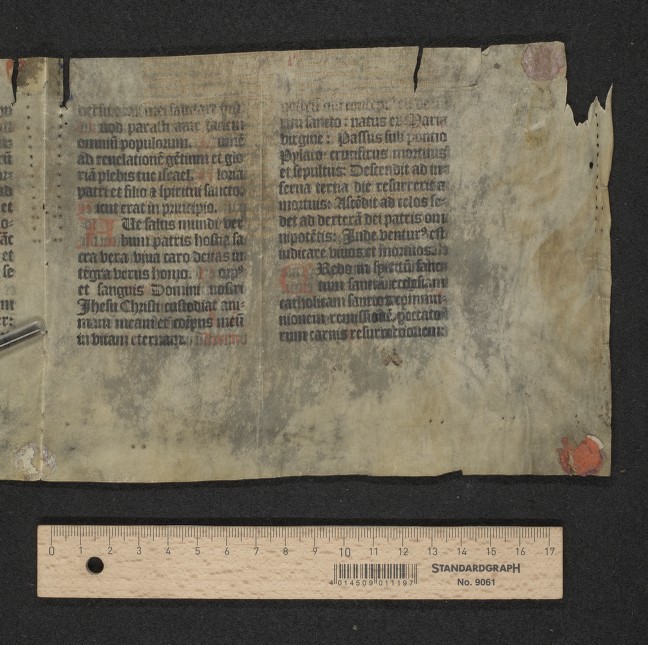 quod parasti ante faciem
omniū populorum. Lumē
ad reuelationē gētium et glo
riā plebis tue israel. Gloria
patri et filio & spiritui sancto.
Sicut erat in principio.
Aue salus mundi ver
bum patris hostia sa
cra vera viua caro deitas in
tegra verus homo. Corpꝰ
et sanguis Domini nostri
Jhesu Christi custodiat ani-
mam meam et corpus meū
in vitam eternam.
ritu sancto: natus ex Maria
virgine: Passus sub pontio
Pylato: crucifixus mortuus
et sepultus: Descendit ad in
ferna tertia die resurrexit a
mortuis: Ascēdit ad celos se-
det ad dexterā dei patris om
nipotētis: Inde venturꝰ est
iudicare viuos et mortuos.
Credo in spiritū sanc
tum sanctā ecclesiam
catholicam sanctorum
nionem remissionē peccato
rum carnis resurrectionem
et
se
0 1 2 3 4 5 6 7 8 9 10 11 12 13 14 15 16 17
4 014509 011197
STANDARDGRAPH
No. 9061